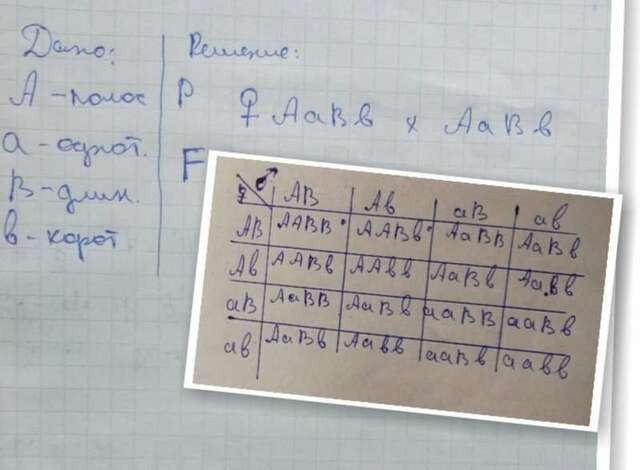 Дано:
Решение:
А - полос
а - однот.
В - длин.
в - корот
Р ♀ АаВв х АаВв
F
♀ ♂ АВ Ав аВ ав
АВ ААВВ ААВв АаВВ АаВв
Ав ААВв ААвв АаВв Аавв
аВ АаВВ АаВв ааВВ ааВв
ав АаВв Аавв ааВв аавв